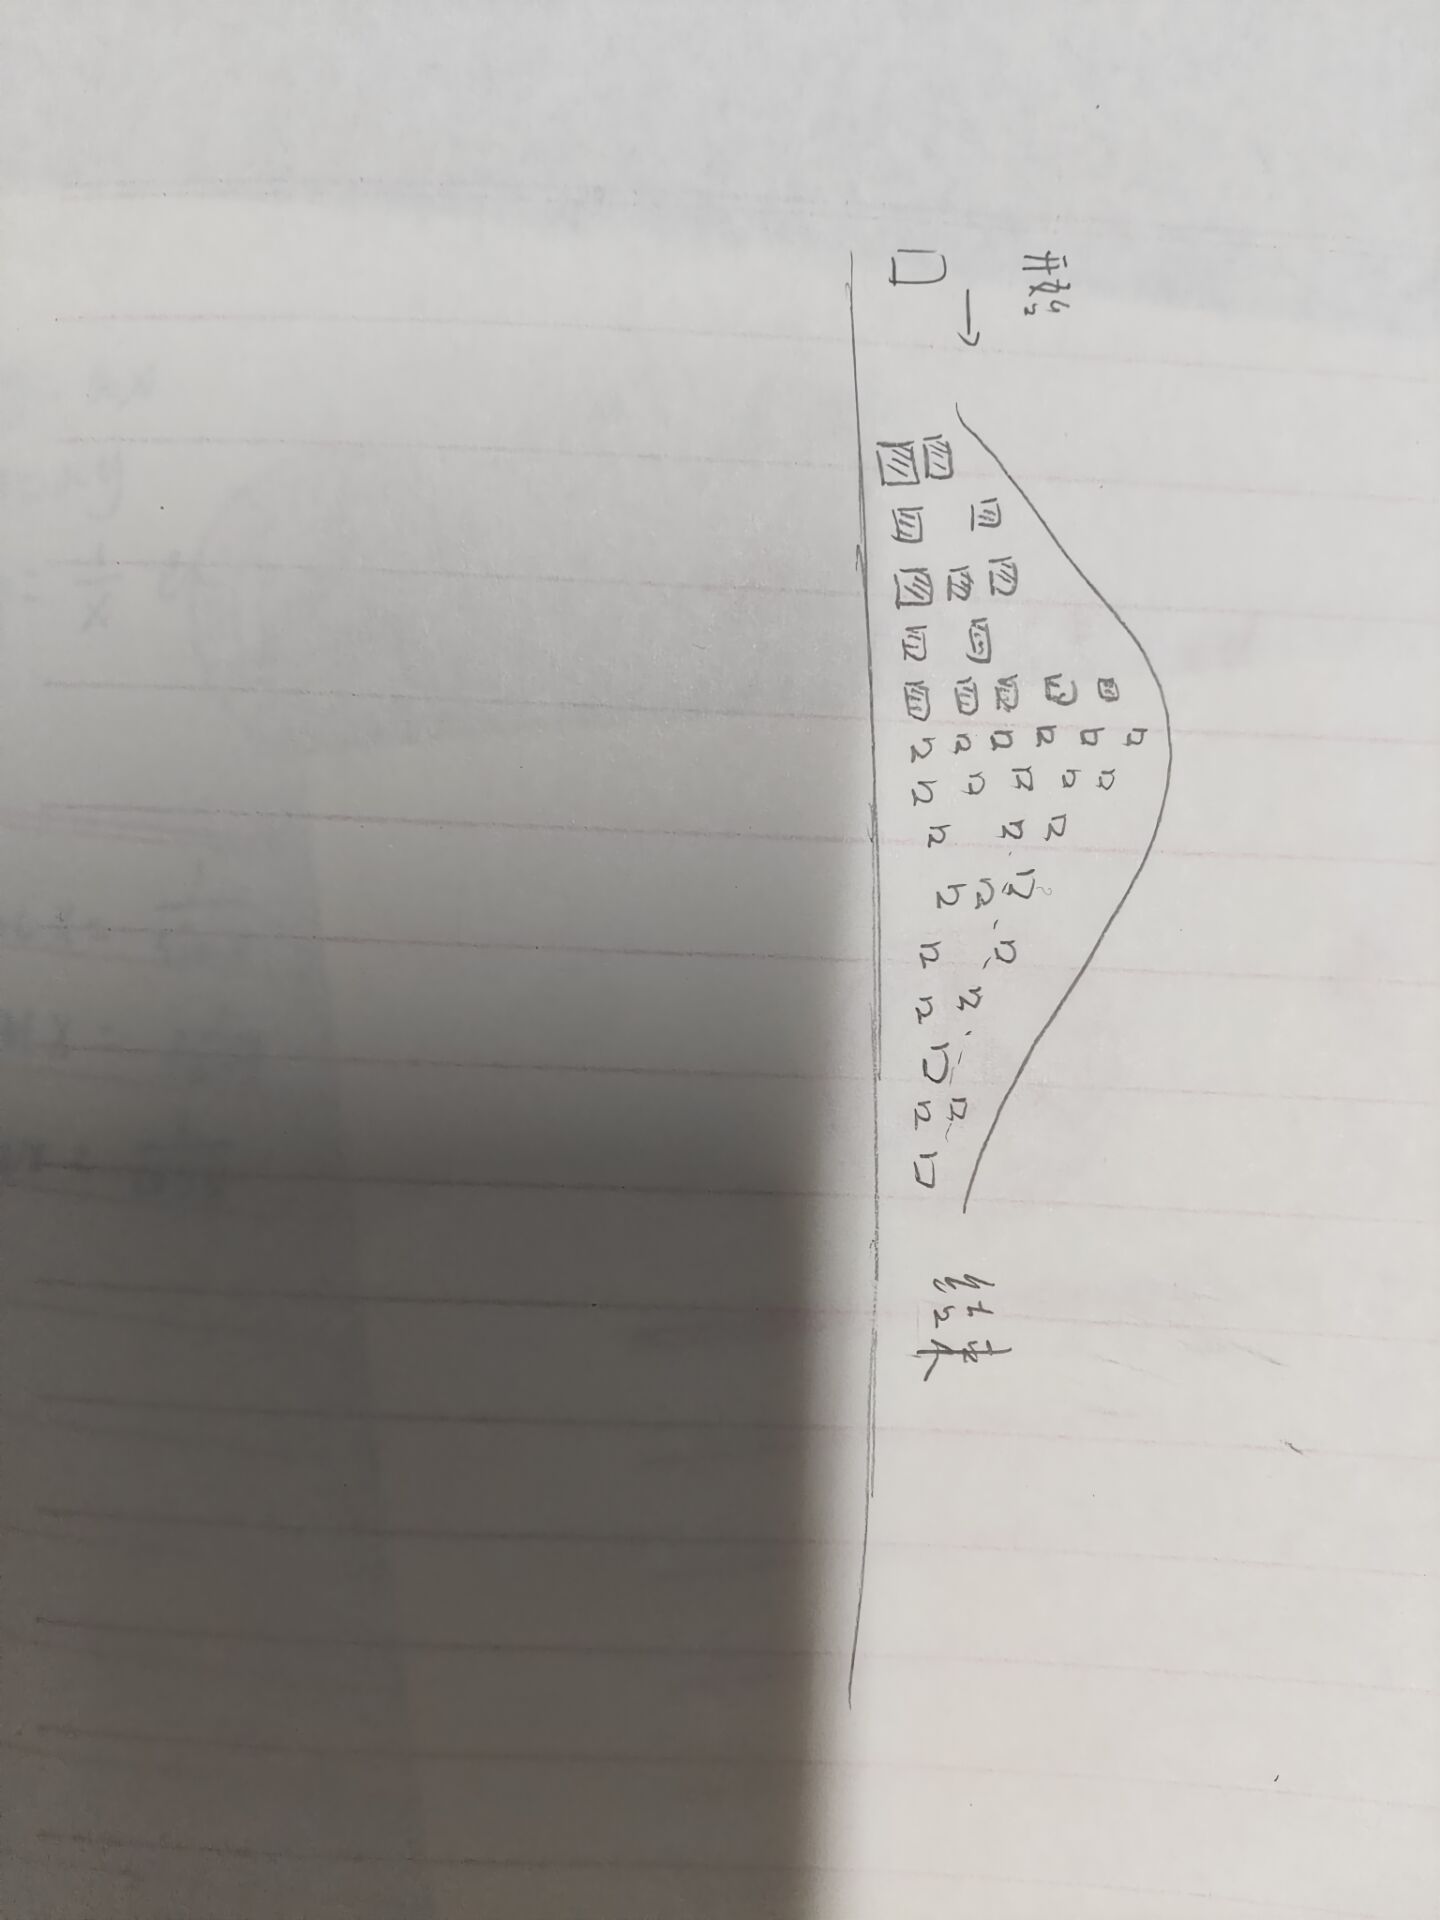 开始
结束